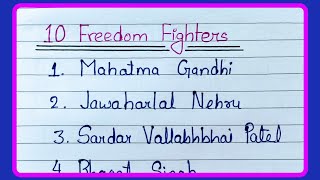 10 Freedom Fighters
1. Mahatma Gandhi
2. Jawaharlal Nehru
3. Sardar Vallabhbhai Patel
4. Bhagat Singh